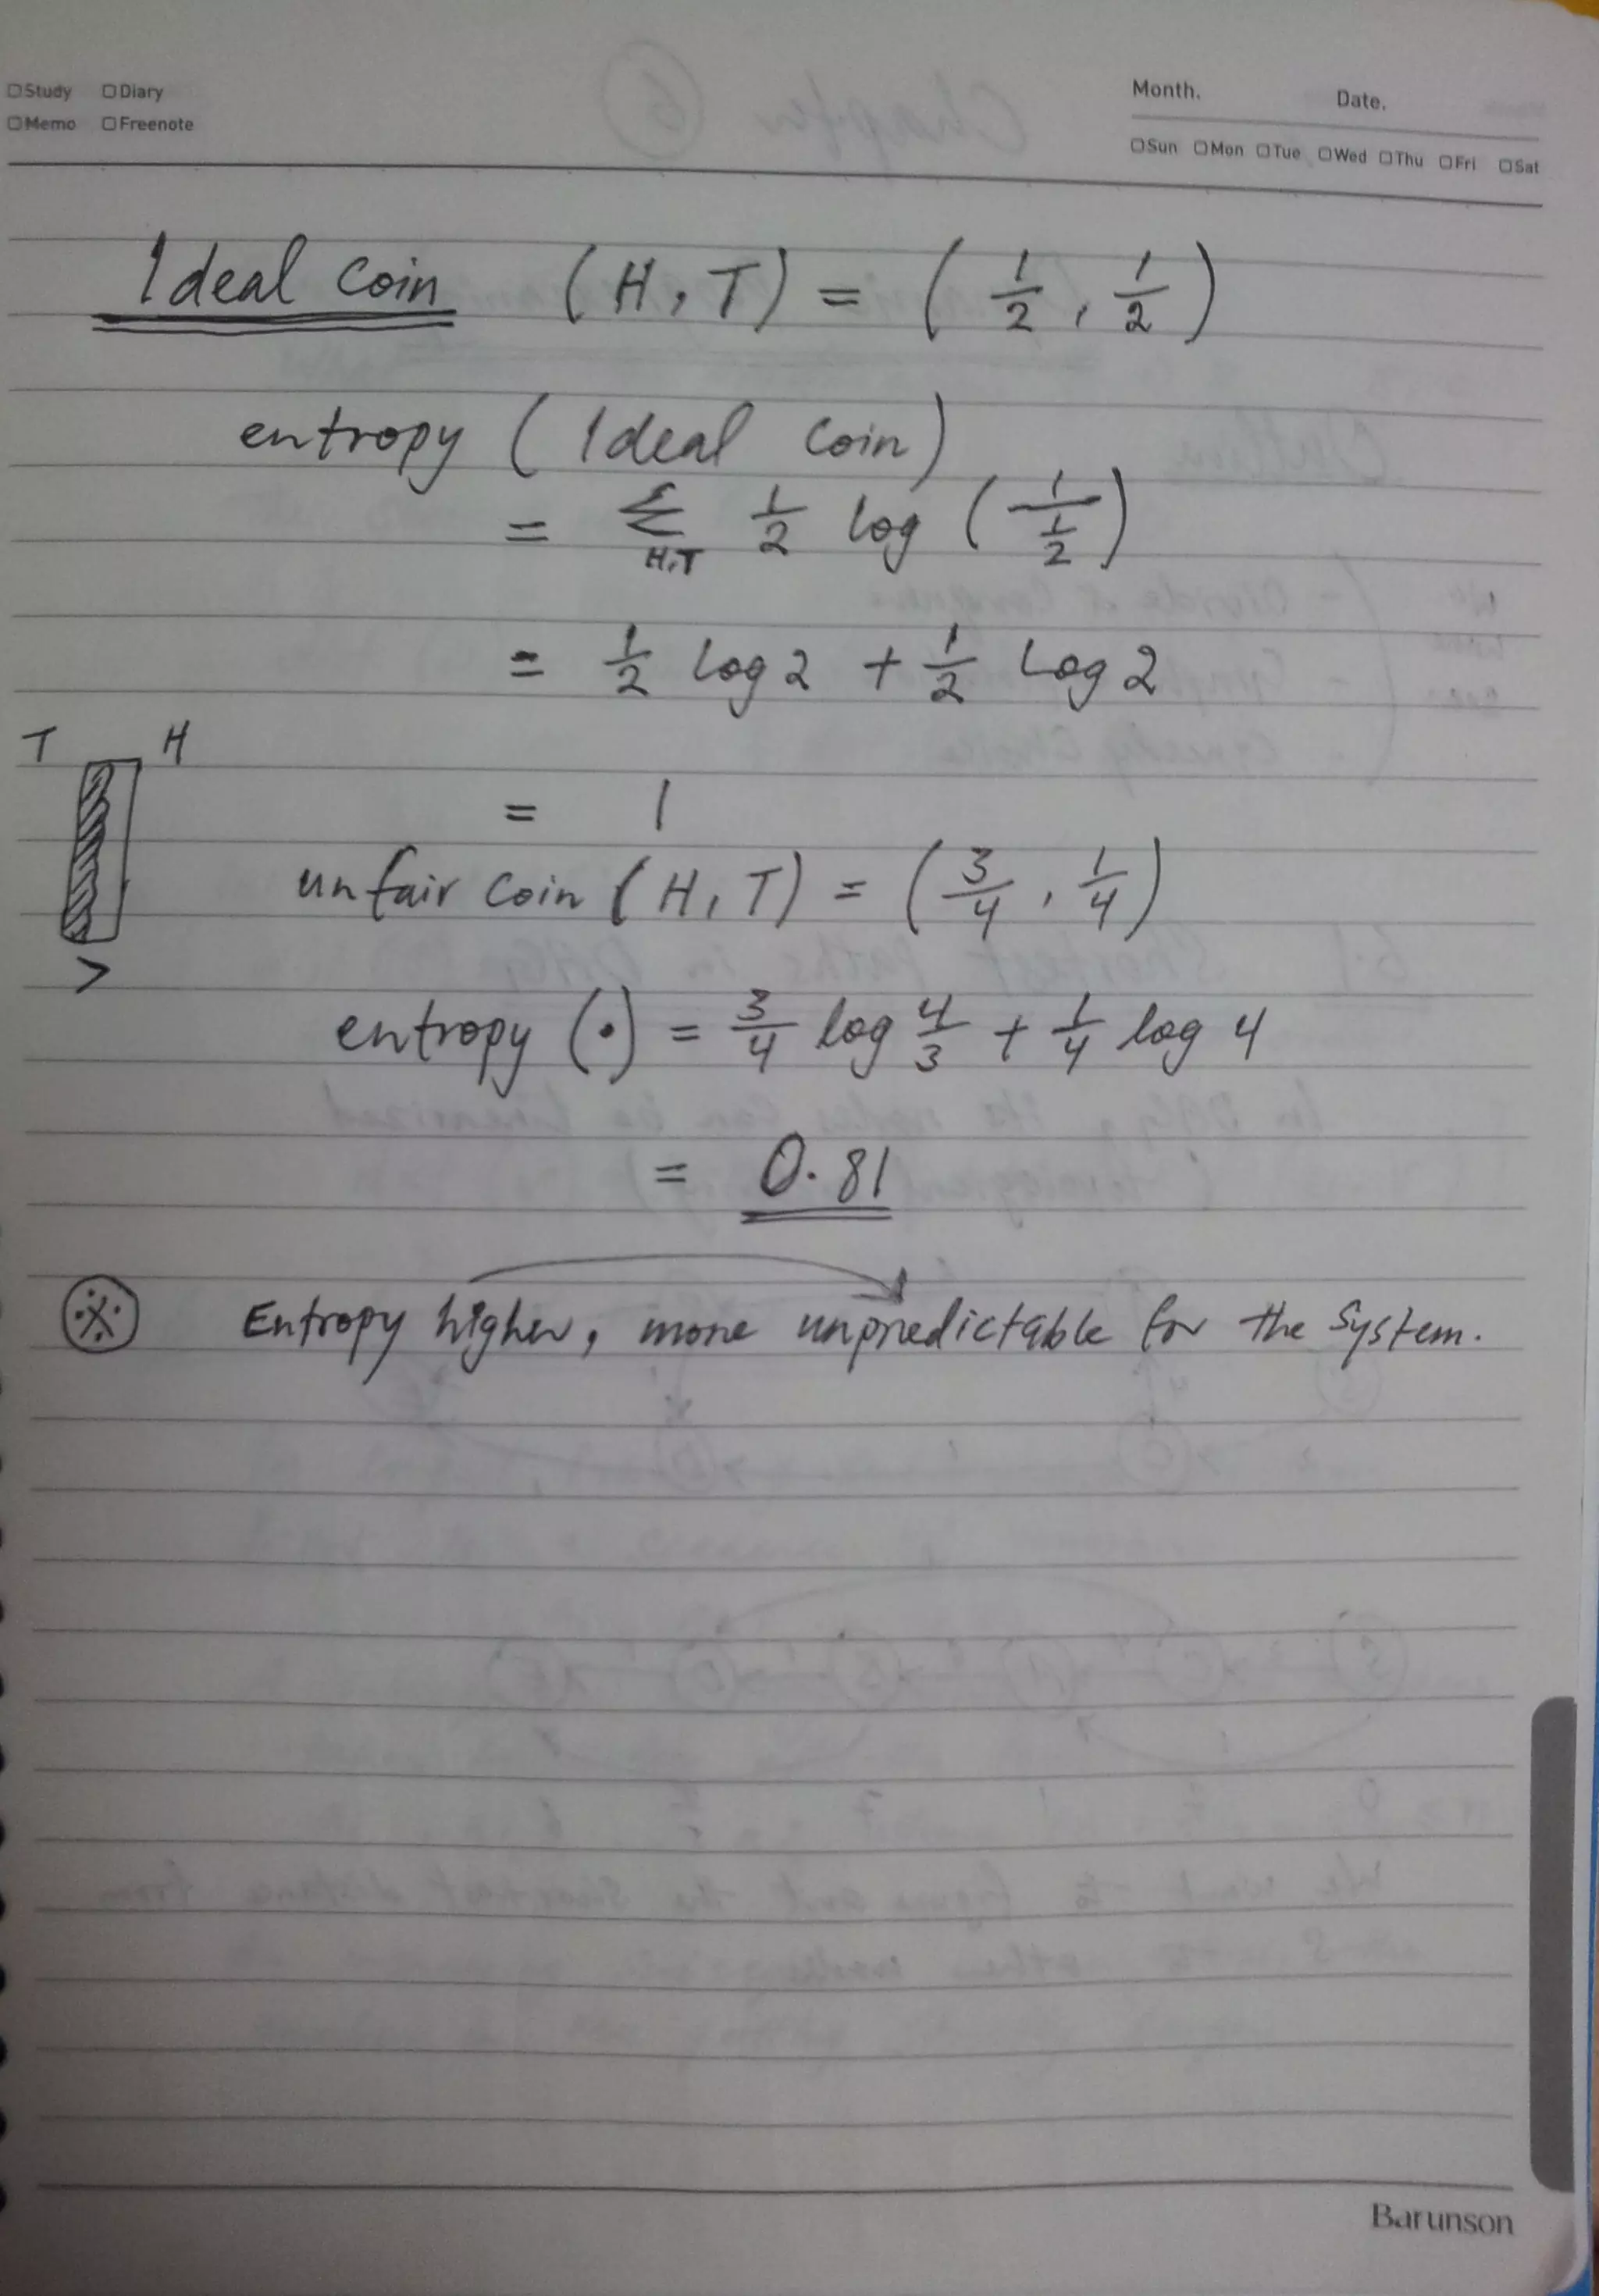 ☐Study ☐Diary
☐Memo ☐Freenote
Month. Date.
☐Sun ☐Mon ☐Tue ☐Wed ☐Thu ☐Fri ☐Sat
Ideal coin (H, T) = (1/2, 1/2)
entropy (Ideal coin)
= Σ_{H,T} 1/2 log (1/(1/2))
= 1/2 log 2 + 1/2 log 2
T H
= 1
unfair coin (H, T) = (3/4, 1/4)
>
entropy (•) = 3/4 log 4/3 + 1/4 log 4
= 0.81
※ Entropy higher, more unpredictable for the system.
Barunson